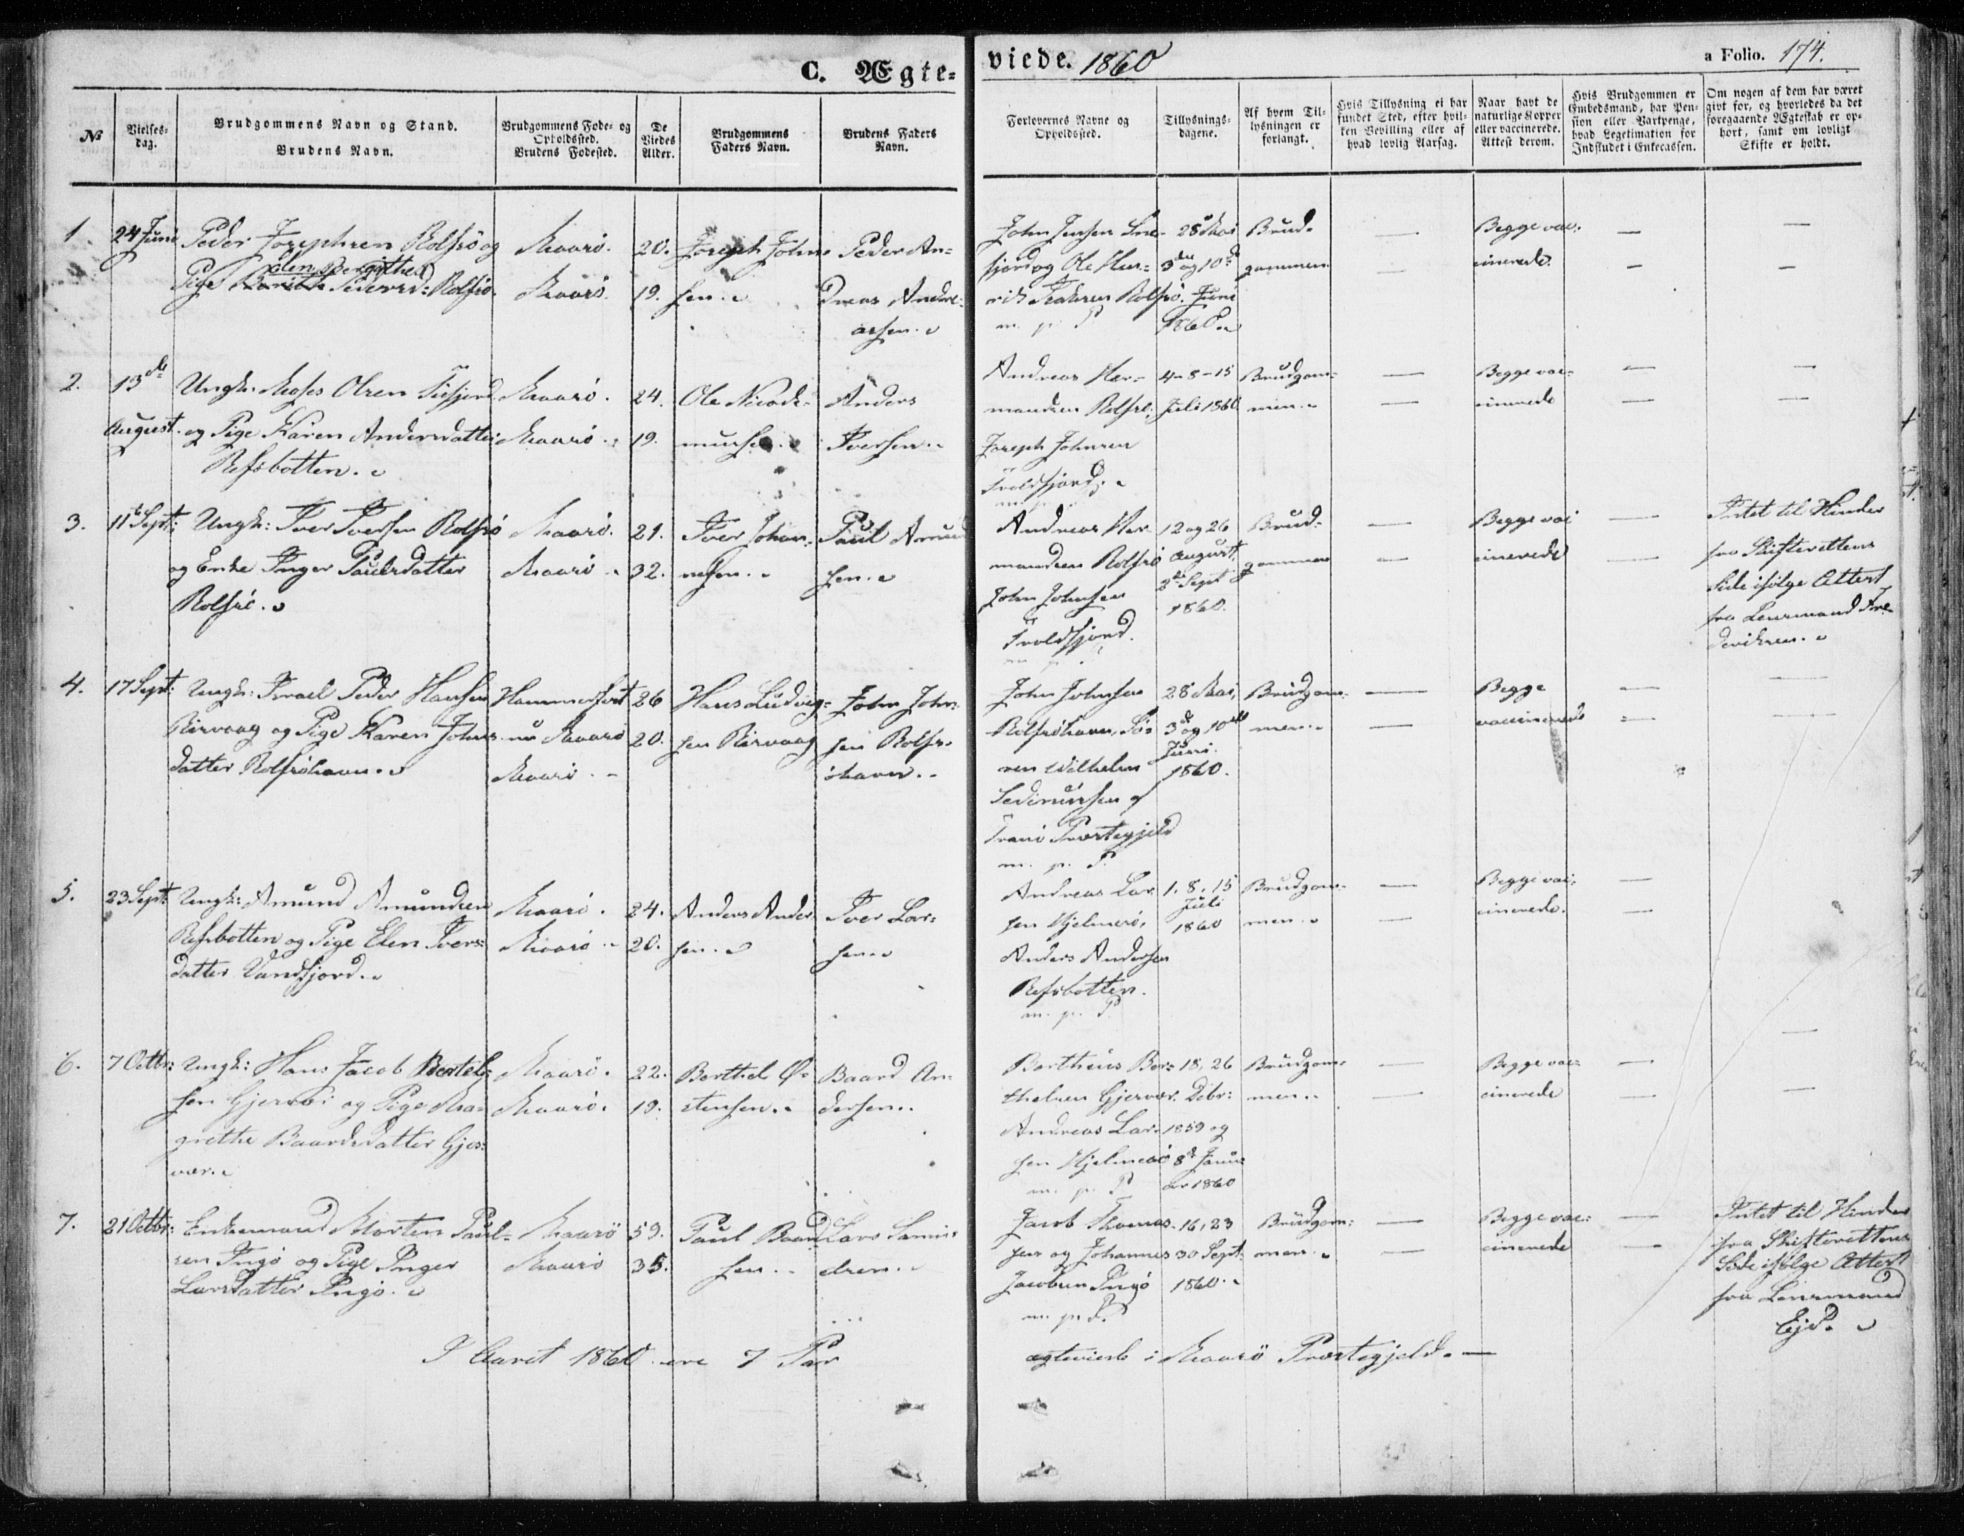 C. Ægte-
viede. 1860
a Folio. 174.
№
Vielses-
dag.
Brudgommens Navn og Stand.
Brudens Navn.
Brudgommens Føde- og
Opholdssted.
Brudens Fødested.
De
Viedes
Alder.
Brudgommens
Faders Navn.
Brudens Faders
Navn.
Forlovernes Navne og
Opholdssted.
Tillysnings-
dagene.
Af hvem Til-
lysningen er
forlangt.
Hvis Tillysning ei har
fundet Sted, efter hvil-
ken Bevilling eller af
hvad lovlig Aarsag.
Naar havt de
naturlige Kopper
eller vaccinerede.
Attest derom.
Hvis Brudgommen er
Embedsmand, har Pen-
sion eller Vartpenge,
hvad Legitimation for
Indskudet i Enkecassen.
Om nogen af dem har været
gift før, og hvorledes da det
foregaaende Ægteskab er op-
hørt, samt om lovligt
Skifte er holdt.
1.
24 Juni
Peder Josephsen Rolfsö og
Elen Beregithe
Pige Pedersd: Rolfsö.
Maasö.
Maasö.
20.
19.
Joseph Johns
sen.
Peder An-
dreas Andre-
assen.
John Jensen Sne-
fjord og Ole Hen-
rik Rolfsö.
m. p. P
28 Mai
3die og 10de
Juni
1860.
Brud-
gommen
Begge vac-
cinerede.
2.
13de
August.
Ungk: Moses Olsen
og Pige Karen Andersdatter
Refsbotten.
Maasö.
Maasö.
24.
19.
Ole Nicode-
mussen.
Anders
Iversen.
Andreas Her-
mandsen Rolfsö,
Joseph Johnsen
Troldfjord.
4-8-15
Juli 1860
Brudgom-
men.
Begge vac-
cinerede
3.
11te Sept:
Ungk: Iver Iversen Rolfsö
og Enke Inger Paulsdatter
Rolfsö.
Maasö.
Maasö.
21.
32.
Iver Johan-
nesen.
Paul Amund
sen.
Andreas Her-
mandsen Rolfsö
John Johnsen
Troldfjord.
12 og 26
August,
2de Sept
1860.
Brud-
gommen
Begge vac
cinerede
Intet til Hinder
fra Skifterettens
Side ifølge Attest
fra Lensmand Fre-
deriksen.
4.
17 Sept:
Ungk: Israel Peder Hansen
Rirvaag og Pige Karen Johns-
datter Rolfsöhavn.
Hammerfest
nu Maasö
Maasö.
26
20.
Hans Ludvig-
sen Rirvaag
John John-
sen Rolfs-
öhavn.
John Johnsen
Rolfsöhavn, Sö-
ren Wilhelm
Sedinussen af
Trani Præstegjeld
m. p. P.
28 Mai,
3de og 10de
Juni.
1860.
Brudgom-
men.
Begge
vaccinerede
5.
23 Sept:
Ungk: Amund Amundsen
Refsbotten og Pige Elen Ivers-
datter Vandfjord.
Maasö.
Maasö.
24.
20.
Anders Ander
sen.
Iver Lar-
sen.
Andreas Lar-
sen Hjelmesö,
Anders Andersen
Refsbotten.
m. p. P.
1. 8. 15
Juli
1860
Brudgom-
men.
Begge vac-
cinerede.
6.
7 Octbr:
Ungk: Hans Jacob Bertel-
sen Gjesvær og Pige Ma-
grethe Baardsdatter Gjes-
vær.
Maasö.
Maasö.
22.
19.
Berthel Ø-
stensen.
Baard An-
dersen.
Bertheus Ber-
thelsen Gjesvær.
Andreas Lar-
sen Hjelmesö
m. p. P
18, 26
Dcbr:
1859 og
8de Janu-
ar 1860
Brudgom-
men.
Begge vac-
cinerede
7.
21 Octbr:
Enkemand Morten Paul-
sen Ingö og Pige Inger
Larsdatter Ingö.
Maasö
Maasö
59.
35.
Paul Baard
sen.
Lars Samu-
elsen.
Jacob Thomas-
sen og Johannes
Jacobsen Ingö
m. p. P.
16, 23
30 Sept:
1860.
Brudgom-
men.
Begge vac-
cinerede
Intet til Hinder
fra Skifterettens
Side ifølge Attest
fra Lensmand
I Aaret 1860 ere 7 Par
ægteviede i Maasö Præstegjeld.